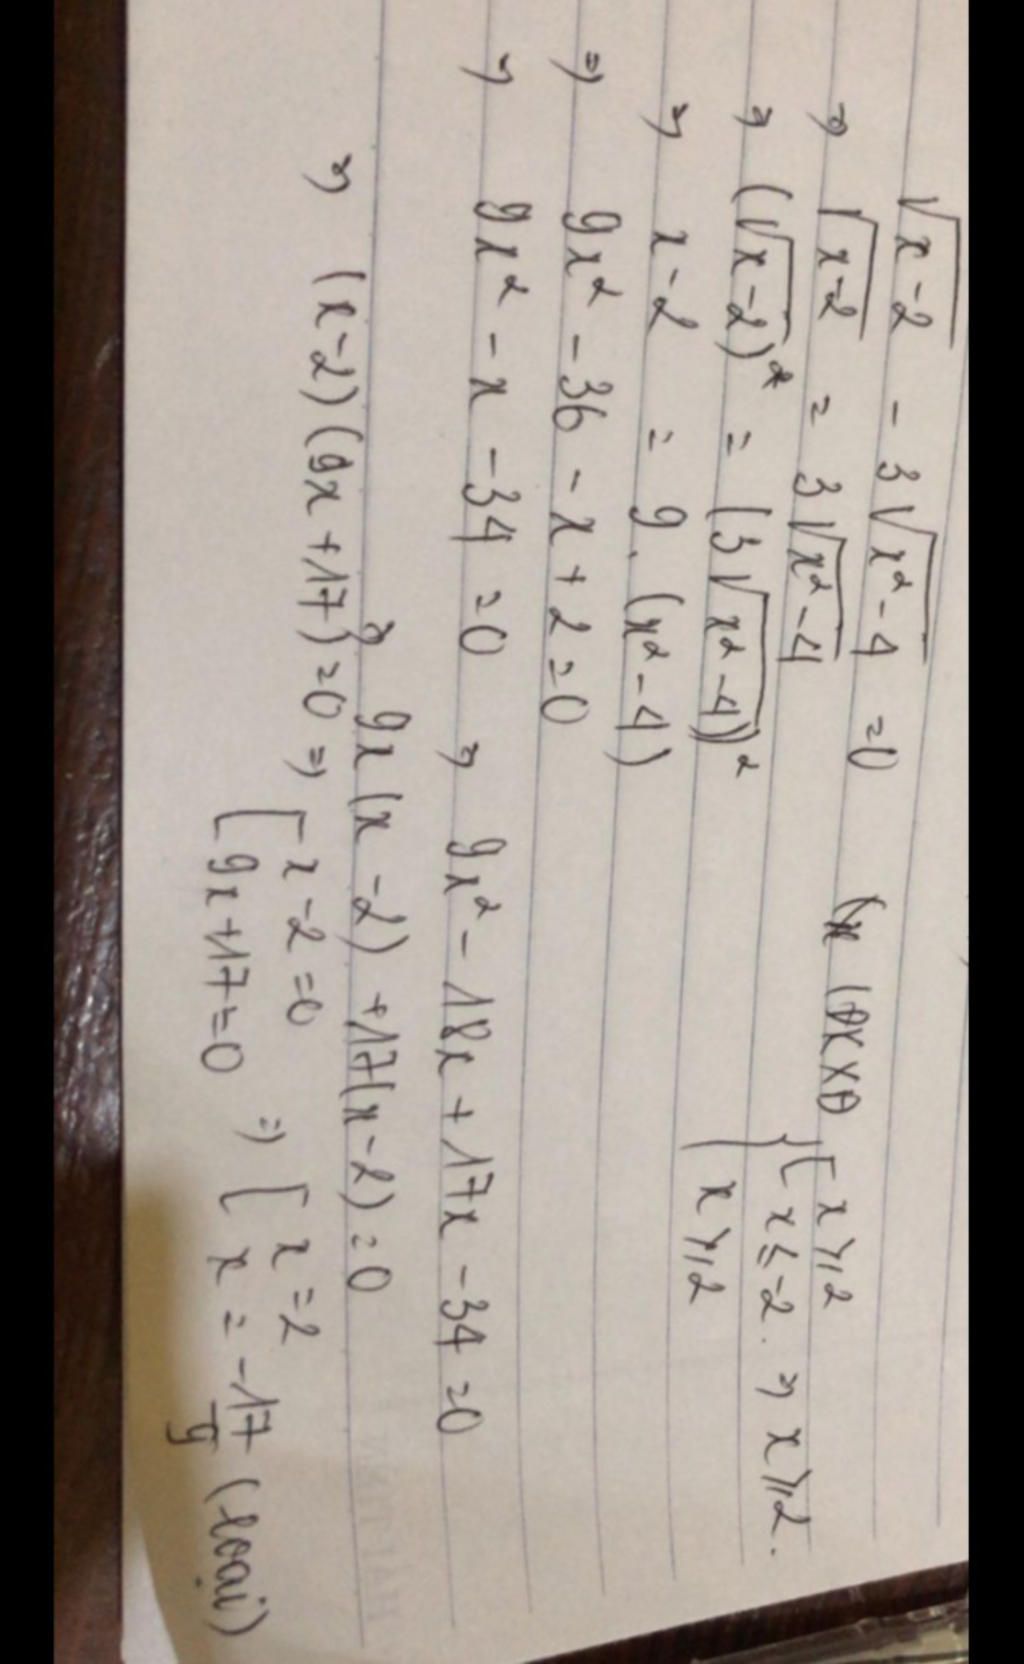 √(x-2) - 3√(x²-4) = 0 (x (ĐKXĐ { [ x ≥ 2
⇒ √(x-2) = 3√(x²-4) [ x ≤ -2. ⇒ x ≥ 2.
⇒ (√(x-2))² = (3√(x²-4))² x ≥ 2
⇒ x-2 = 9. (x²-4)
⇒ 9x² - 36 - x + 2 = 0
⇒ 9x² - x - 34 = 0 ⇒ 9x² - 18x + 17x - 34 = 0
⇒ 9x (x - 2) + 17(x-2) = 0
⇒ (x-2)(9x+17) = 0 ⇒ [ x-2=0 ⇒ [ x = 2
[ 9x+17=0 x = -17/9 (loại)